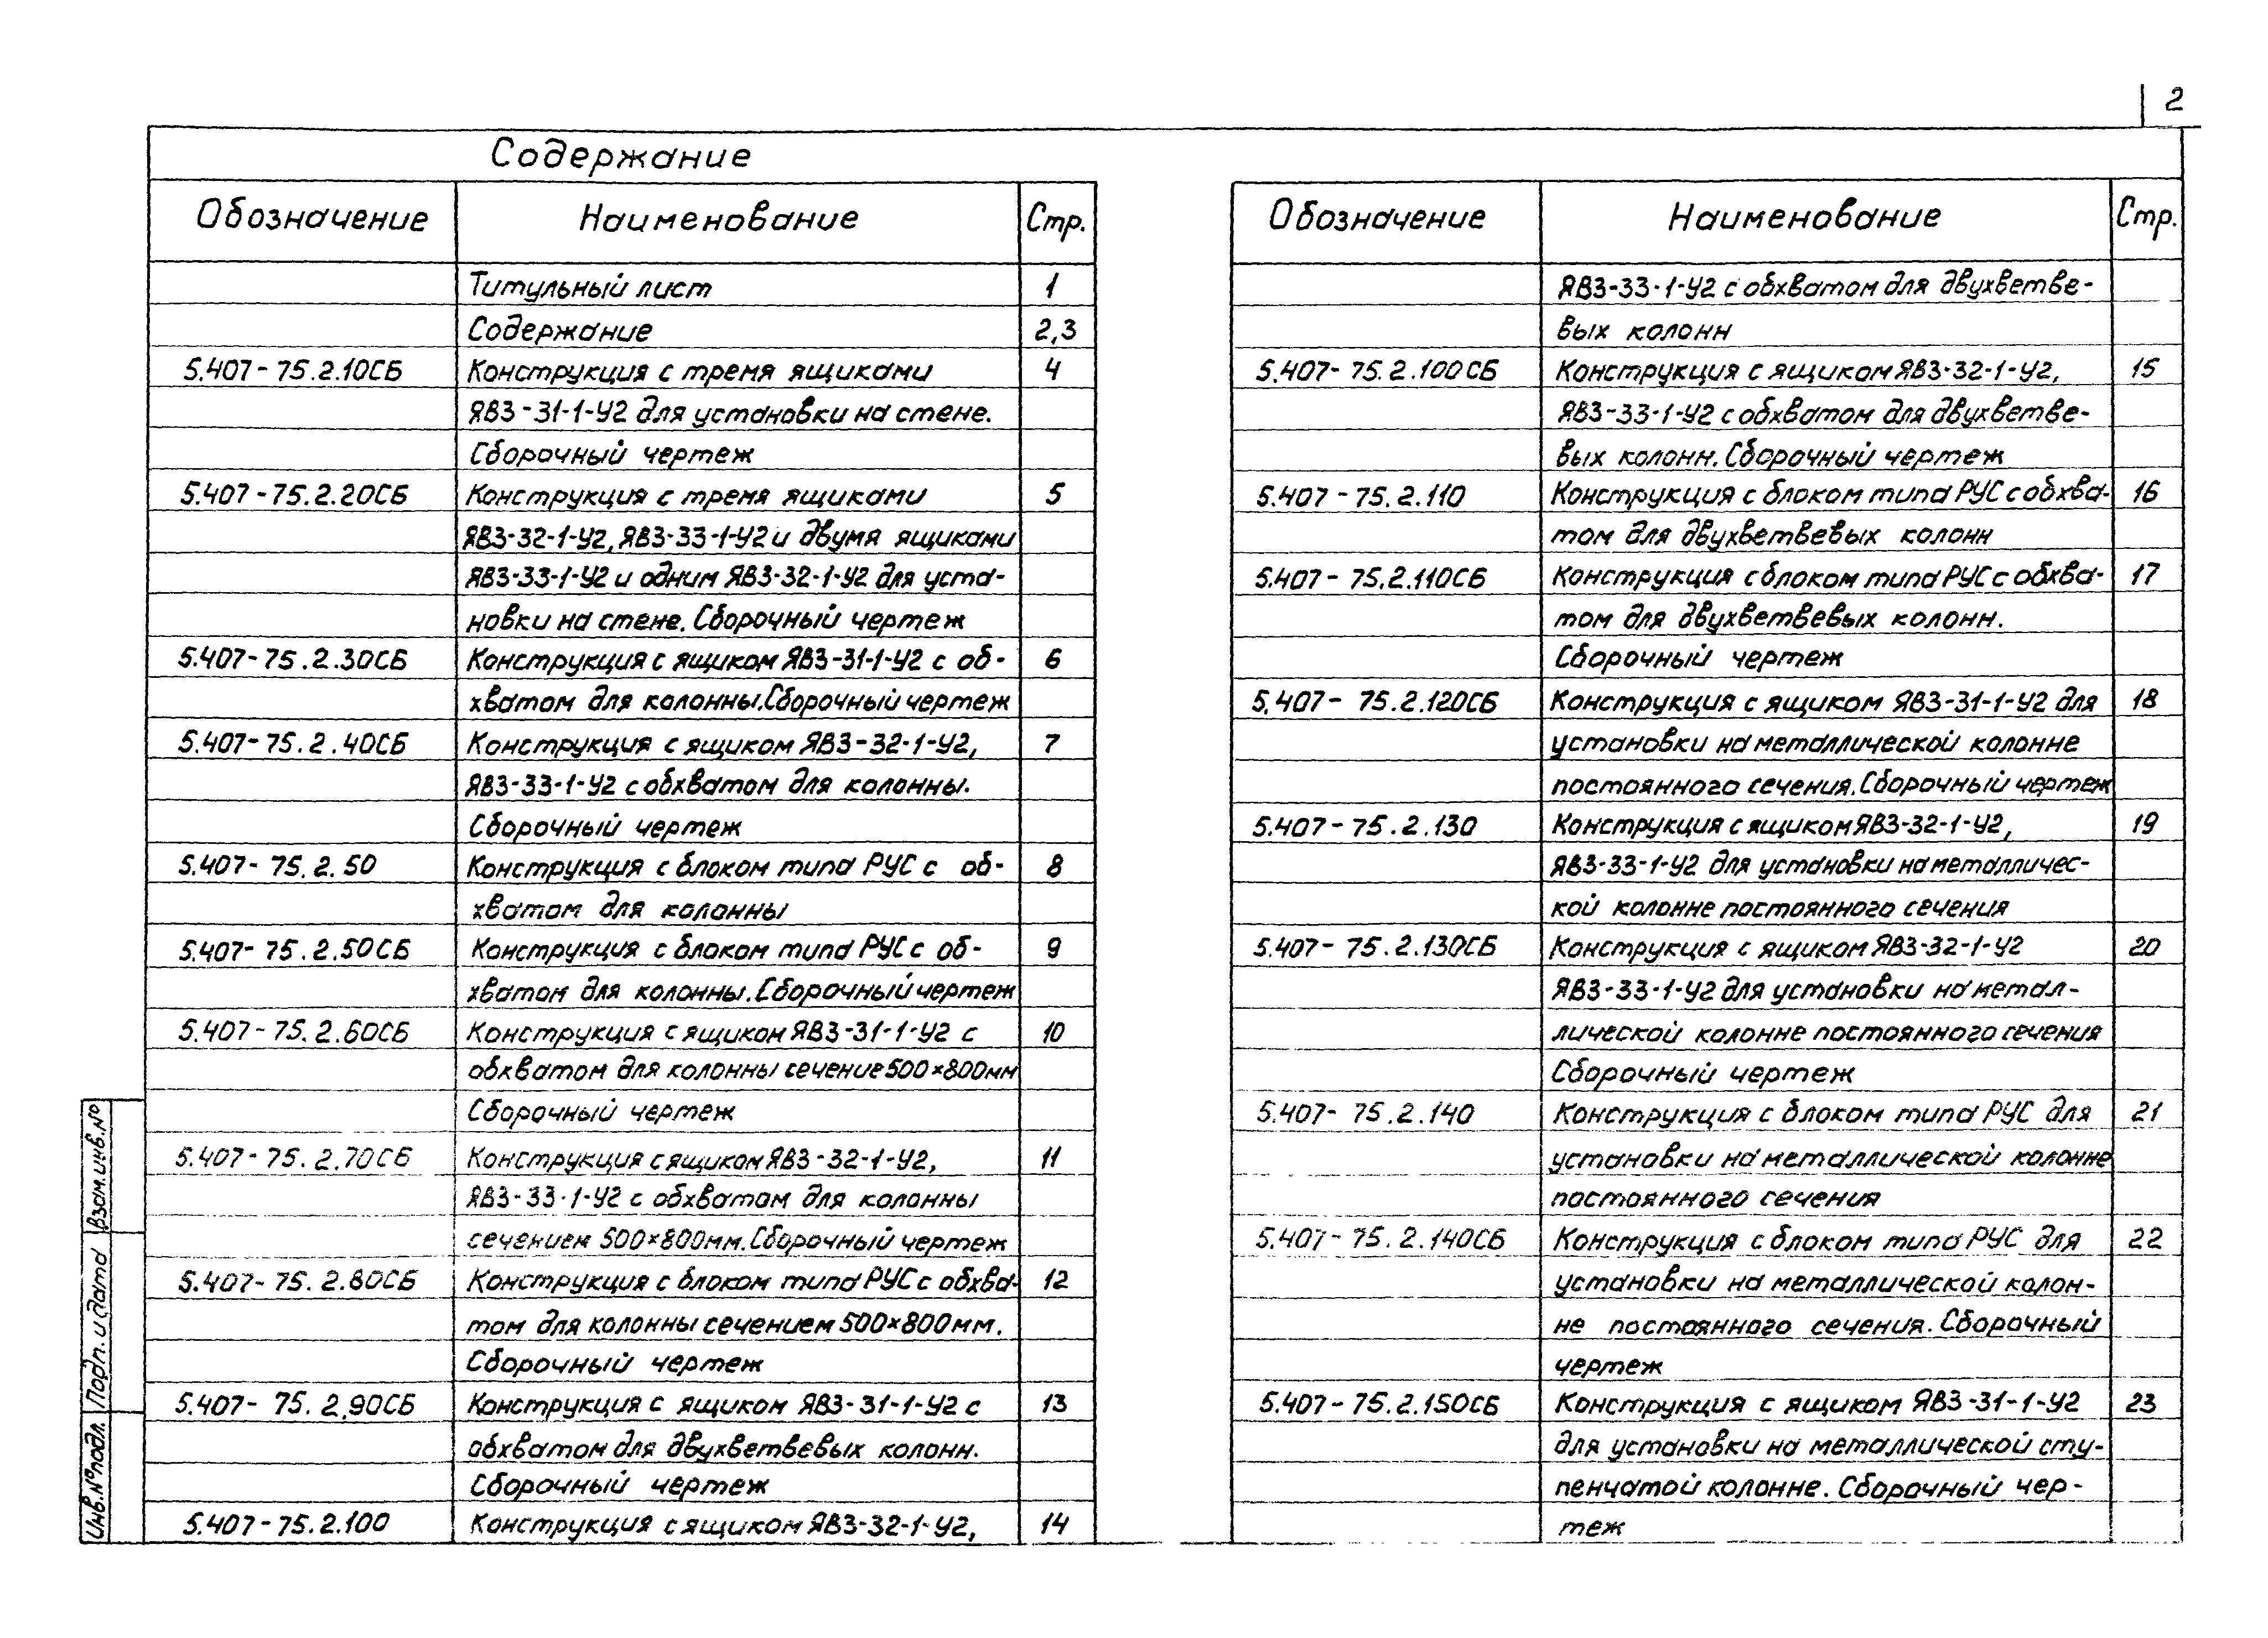 2
Содержание
Обозначение Наименование Стр.
Титульный лист 1
Содержание 2,3
5.407-75.2.10СБ Конструкция с тремя ящиками 4
ЯВЗ-31-1-У2 для установки на стене.
Сборочный чертеж
5.407-75.2.20СБ Конструкция с тремя ящиками 5
ЯВЗ-32-1-У2, ЯВЗ-33-1-У2 и двумя ящиками
ЯВЗ-33-1-У2 и одним ЯВЗ-32-1-У2 для уста-
новки на стене. Сборочный чертеж
5.407-75.2.30СБ Конструкция с ящиком ЯВЗ-31-1-У2 с об- 6
хватом для колонны. Сборочный чертеж
5.407-75.2.40СБ Конструкция с ящиком ЯВЗ-32-1-У2, 7
ЯВЗ-33-1-У2 с обхватом для колонны.
Сборочный чертеж
5.407-75.2.50 Конструкция с блоком типа РУС с об- 8
хватом для колонны
5.407-75.2.50СБ Конструкция с блоком типа РУС с об- 9
хватом для колонны. Сборочный чертеж
5.407-75.2.60СБ Конструкция с ящиком ЯВЗ-31-1-У2 с 10
обхватом для колонны сечение 500×800мм
Сборочный чертеж
5.407-75.2.70СБ Конструкция с ящиком ЯВЗ-32-1-У2, 11
ЯВЗ-33-1-У2 с обхватом для колонны
сечением 500×800мм. Сборочный чертеж
5.407-75.2.80СБ Конструкция с блоком типа РУС с обхва- 12
том для колонны сечением 500×800мм.
Сборочный чертеж
5.407-75.2.90СБ Конструкция с ящиком ЯВЗ-31-1-У2 с 13
обхватом для двухветвевых колонн.
Сборочный чертеж
5.407-75.2.100 Конструкция с ящиком ЯВЗ-32-1-У2, 14
Обозначение Наименование Стр.
ЯВЗ-33-1-У2 с обхватом для двухветве-
вых колонн
5.407-75.2.100СБ Конструкция с ящиком ЯВЗ-32-1-У2, 15
ЯВЗ-33-1-У2 с обхватом для двухветве-
вых колонн. Сборочный чертеж
5.407-75.2.110 Конструкция с блоком типа РУС с обхва- 16
том для двухветвевых колонн
5.407-75.2.110СБ Конструкция с блоком типа РУС с обхва- 17
том для двухветвевых колонн.
Сборочный чертеж
5.407-75.2.120СБ Конструкция с ящиком ЯВЗ-31-1-У2 для 18
установки на металлической колонне
постоянного сечения. Сборочный чертеж
5.407-75.2.130 Конструкция с ящиком ЯВЗ-32-1-У2, 19
ЯВЗ-33-1-У2 для установки на металличес-
кой колонне постоянного сечения
5.407-75.2.130СБ Конструкция с ящиком ЯВЗ-32-1-У2 20
ЯВЗ-33-1-У2 для установки на метал-
лической колонне постоянного сечения
Сборочный чертеж
5.407-75.2.140 Конструкция с блоком типа РУС для 21
установки на металлической колонне
постоянного сечения
5.407-75.2.140СБ Конструкция с блоком типа РУС для 22
установки на металлической колон-
не постоянного сечения. Сборочный
чертеж
5.407-75.2.150СБ Конструкция с ящиком ЯВЗ-31-1-У2 23
для установки на металлической сту-
пенчатой колонне. Сборочный чер-
теж
Взам.инв.№
Подп. и дата
Инв.№подл.